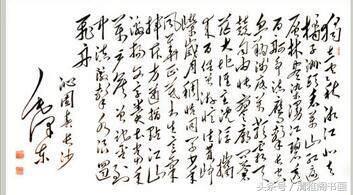 独立寒秋湘江北去
橘子洲头看万山红遍
层林尽染漫江碧透
百舸争流鹰击长空
鱼翔浅底万类霜天
竞自由怅寥廓问苍
茫大地谁主沉浮携
来百侣曾游忆往昔峥
嵘岁月稠恰同学少年
风华正茂书生意气
挥斥方遒指点江山
激扬文字粪土当年
万户侯曾记否到
中流击水浪遏
飞舟
沁园春长沙
毛泽东
头条号/潇雅阁书画